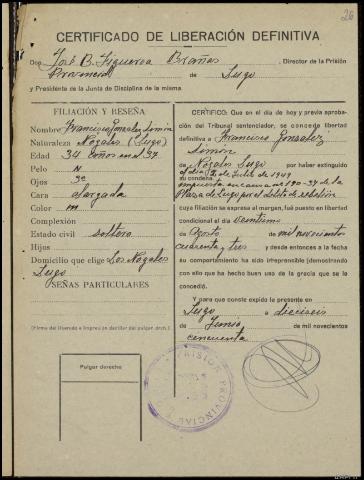 26
CERTIFICADO DE LIBERACIÓN DEFINITIVA
Don José B. Figueroa Brañas, Director de la Prisión
Provincial de Lugo
y Presidente de la Junta de Disciplina de la misma.
FILIACIÓN Y RESEÑA
Nombre Francisco Gonzalez Simón
Naturaleza Nogales (Lugo)
Edad 34 años en el 37
Pelo N
Ojos
Cara alargada
Color m
Complexión
Estado civil soltero
Hijos
Domicilio que elige Los Nogales
Lugo
SEÑAS PARTICULARES
(Firma del liberado e impresión dactilar del pulgar drch.)
Pulgar derecho
CERTIFICO: Que en el día de hoy y previa aproba-
ción del Tribunal sentenciador, se concede libertad
definitiva a Francisco Gonzalez
Simón
de Nogales Lugo por haber extinguido
el día 2 de Julio de 1949
su condena
impuesta en causa nº 190-37 de la
Plaza de Lugo por el delito de rebelión
cuya filiación se expresa al margen, fué puesto en libertad
condicional el día veintiuno
de Agosto de mil novecientos
cuarenta y tres y desde entonces a la fecha
su comportamiento ha sido irreprensible (demostrando
con ello que ha hecho buen uso de la gracia que se le
concedió.
Y para que conste expido la presente en
Lugo a dieciseis
de Junio de mil novecientos
cincuenta
PRISION PROVINCIAL